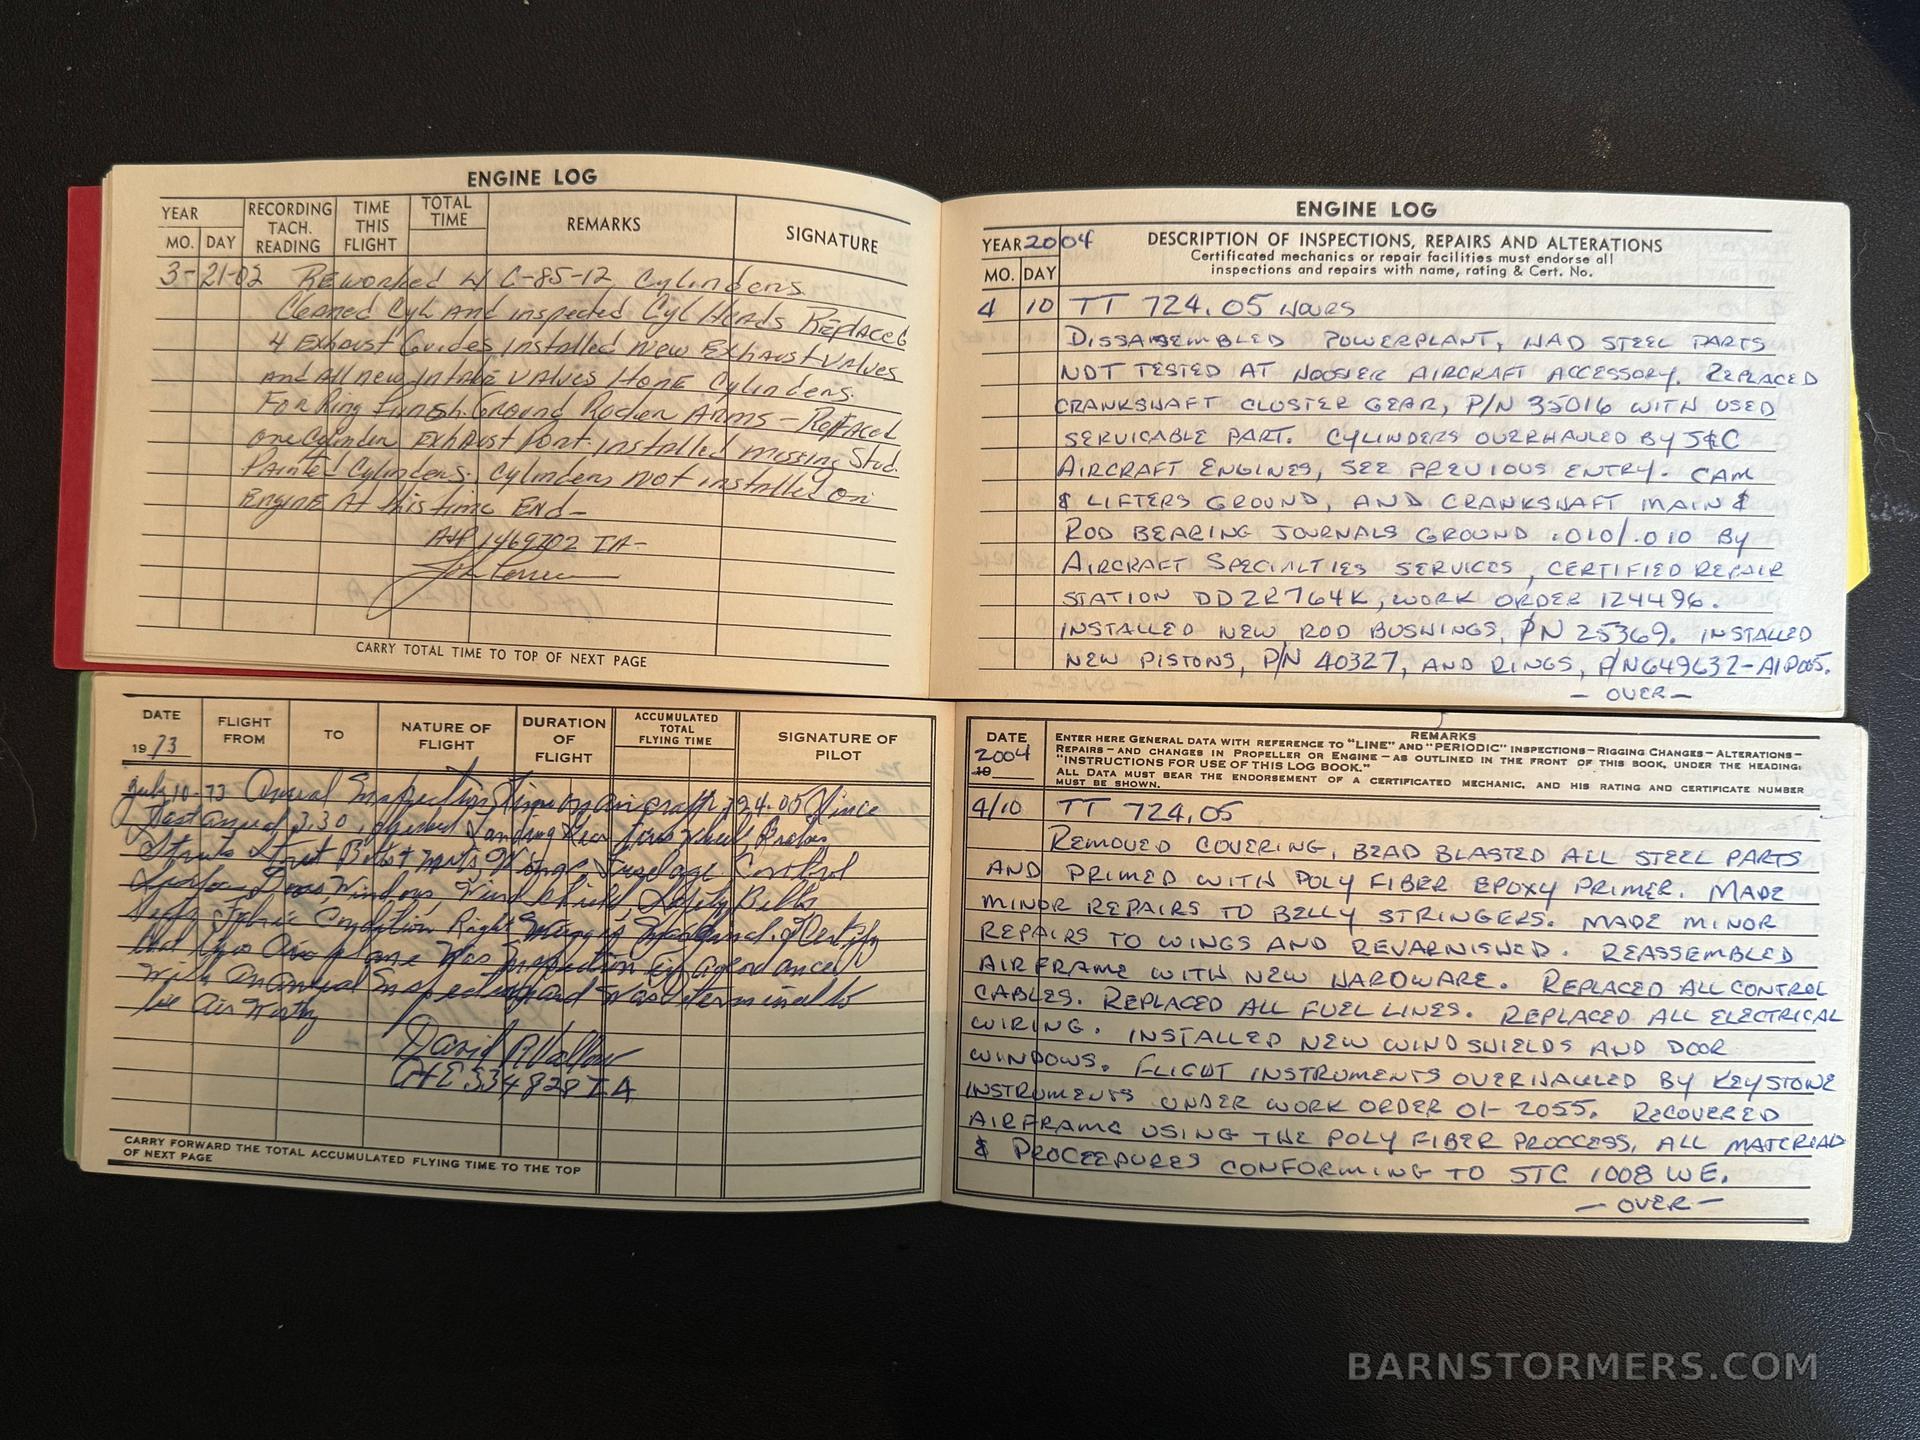 ENGINE LOG
YEAR
MO. DAY
RECORDING TACH. READING
TIME THIS FLIGHT
TOTAL TIME
REMARKS
SIGNATURE
3-21-02 Reworked 4 C-85-12 Cylinders.
Cleaned Cyl and inspected Cyl Heads Replaced
4 Exhaust Guides, installed new Exhaust valves
and All new Intake valves Hone Cylinders.
For Ring Finish. Ground Rocker Arms - Replaced
one Cylinder Exhaust Port installed missing Stud.
Painted Cylinders. Cylinders not installed on
Engine At this time End-
A&P 1469702 IA-
CARRY TOTAL TIME TO TOP OF NEXT PAGE
ENGINE LOG
YEAR 2004
MO. DAY
DESCRIPTION OF INSPECTIONS, REPAIRS AND ALTERATIONS
Certificated mechanics or repair facilities must endorse all
inspections and repairs with name, rating & Cert. No.
4 10 TT 724.05 HOURS
DISSASSEMBLED POWERPLANT, HAD STEEL PARTS
NDT TESTED AT HOOSIER AIRCRAFT ACCESSORY. REPLACED
CRANKSHAFT CLUSTER GEAR, P/N 35016 WITH USED
SERVICABLE PART. CYLINDERS OVERHAULED BY J&C
AIRCRAFT ENGINES, SEE PREVIOUS ENTRY. CAM
& LIFTERS GROUND, AND CRANKSHAFT MAIN &
ROD BEARING JOURNALS GROUND .010/.010 BY
AIRCRAFT SPECIALTIES SERVICES, CERTIFIED REPAIR
STATION DD2R764K, WORK ORDER 124496.
INSTALLED NEW ROD BUSHINGS, PN 25369. INSTALLED
NEW PISTONS, P/N 40327, AND RINGS, P/N 649632-A1P005.
- OVER -
DATE
19 73
FLIGHT FROM
TO
NATURE OF FLIGHT
DURATION OF FLIGHT
ACCUMULATED TOTAL FLYING TIME
SIGNATURE OF PILOT
July 10-73 Annual Inspection, Time on aircraft 724.05 Since
Last annual 3.30, Landing Gear Tires Wheels, Brakes
Struts Strut Bolts Wings Fuselage Control
Doors, Windows, Wind Shield, Safety Belts
Fabric Condition Right I Certify
that this Air plane Was
with an annual Inspection and was
be Air Worthy
David
A&E 334828 IA
CARRY FORWARD THE TOTAL ACCUMULATED FLYING TIME TO THE TOP
OF NEXT PAGE
DATE
2004
19
REMARKS
ENTER HERE GENERAL DATA WITH REFERENCE TO "LINE" AND "PERIODIC" INSPECTIONS—RIGGING CHANGES—ALTERATIONS—
REPAIRS—AND CHANGES IN PROPELLER OR ENGINE—AS OUTLINED IN THE FRONT OF THIS BOOK, UNDER THE HEADING:
"INSTRUCTIONS FOR USE OF THIS LOG BOOK."
ALL DATA MUST BEAR THE ENDORSEMENT OF A CERTIFICATED MECHANIC, AND HIS RATING AND CERTIFICATE NUMBER
MUST BE SHOWN.
4/10 TT 724.05
REMOVED COVERING, BEAD BLASTED ALL STEEL PARTS
AND PRIMED WITH POLY FIBER EPOXY PRIMER. MADE
MINOR REPAIRS TO BELLY STRINGERS. MADE MINOR
REPAIRS TO WINGS AND REVARNISHED. REASSEMBLED
AIRFRAME WITH NEW HARDWARE. REPLACED ALL CONTROL
CABLES. REPLACED ALL FUEL LINES. REPLACED ALL ELECTRICAL
WIRING. INSTALLED NEW WINDSHIELDS AND DOOR
WINDOWS. FLIGHT INSTRUMENTS OVERHAULED BY KEYSTONE
INSTRUMENTS UNDER WORK ORDER 01-2055. RECOVERED
AIRFRAME USING THE POLY FIBER PROCCESS, ALL MATERIAL
& PROCEEPURES CONFORMING TO STC 1008 WE.
- OVER -
BARNSTORMERS.COM